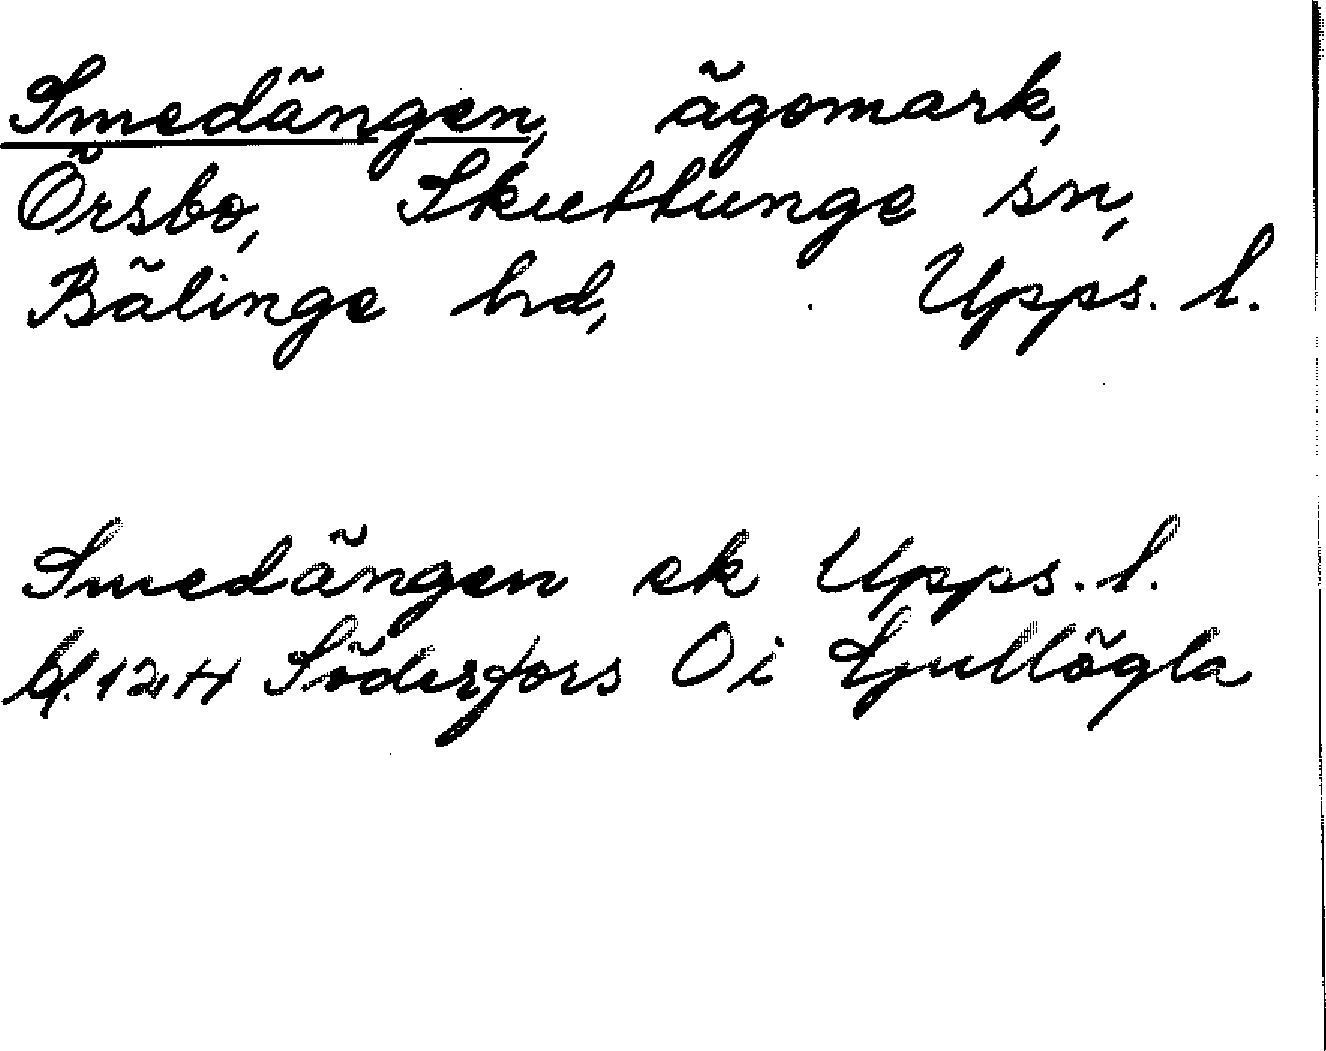 Smedängen, ägomark,
Örsbo, Skuttunge sn,
Bälinge hd, Upps. l.
Smedängen ek Upps. l.
bl. 12H Söderfors O i Ljullögla